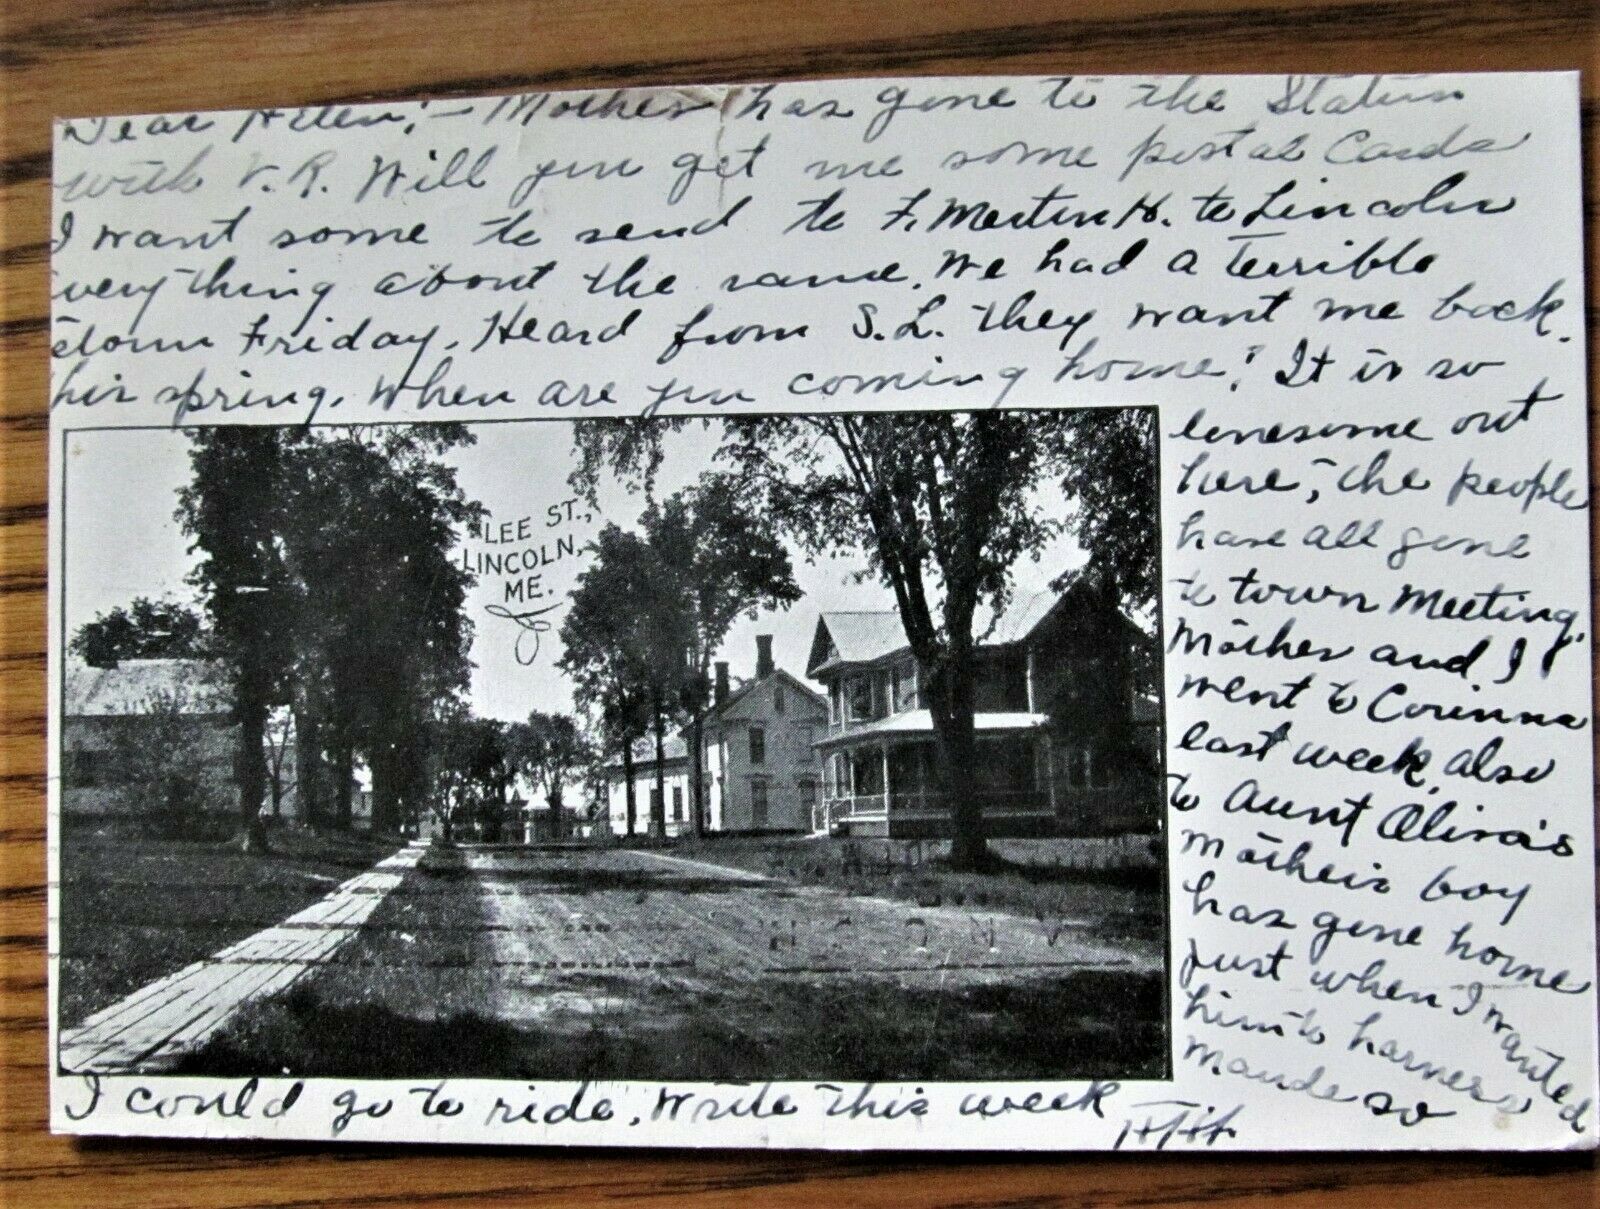 Dear Helen;- Mother has gone to the Station
with V. R. Will you get me some postal Cards
I want some to send to F. Merton H. to Lincoln
everything about the same. We had a terrible
storm Friday. Heard from S. L. they want me back.
this spring. When are you coming home? It is so
lonesome out
here, the people
have all gone
to town Meeting.
Mother and I
went to Corinna
last week, also
to Aunt Olivia's
Mother's boy
has gone home
just when I wanted
him to harness
Maude so
I could go to ride. Write this week
LEE ST.,
LINCOLN,
ME.